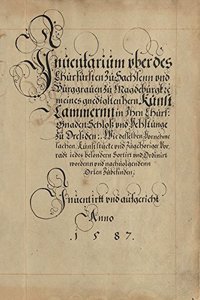 Inuentarium vber des
Churfürsten zu Sachssenn vnd
Burggrauen zu Magdeburgk etc
meines gnedigsten hern, Kunst
Cammernn in Ihrn Churf:
Gnaden Schloß vnd Vehstunge
zu Dresden: Wie dieselben Vornehme
sachen, Kunststücke vnd zugehöriger Vor
radt jedes besondern Sortirt vnd Ordinirt
wordenn vnd nachuolgendenn
Orten zubefinden.
Inuentirt vnd aufgericht
Anno
1587.